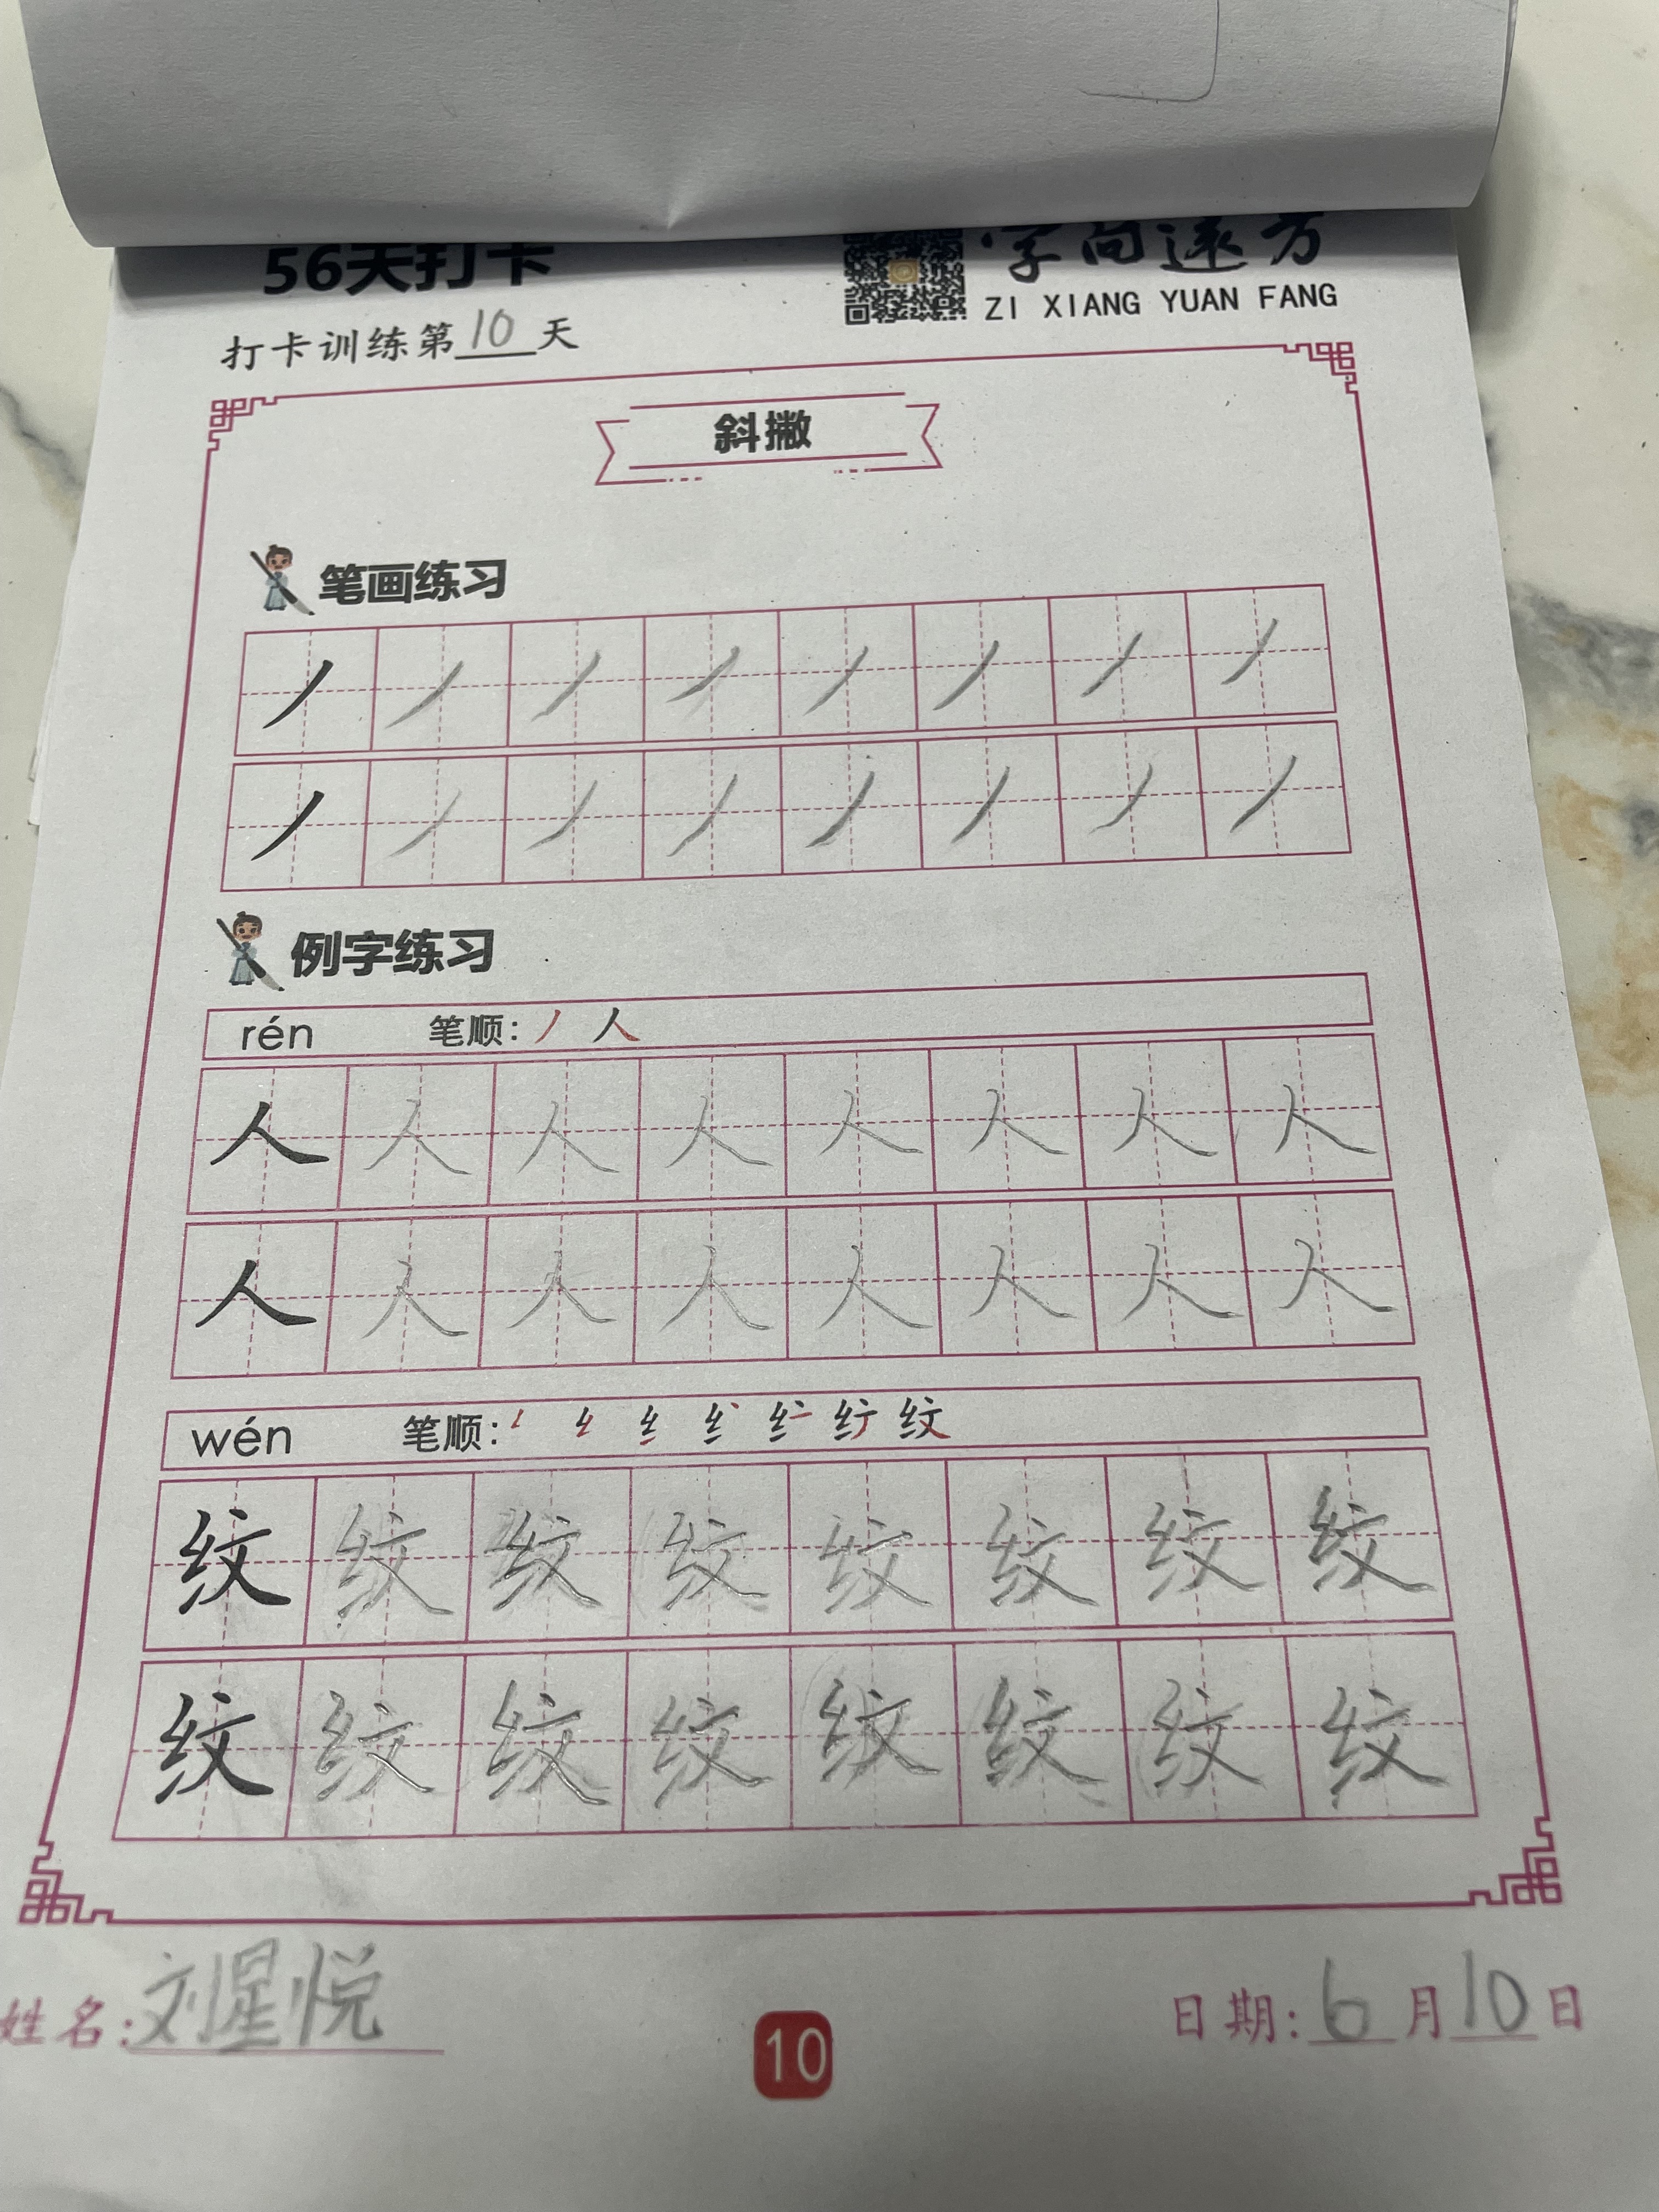 56天打卡
字向远方
ZI XIANG YUAN FANG
打卡训练第10天
斜撇
笔画练习
例字练习
rén 笔顺: 丿 人
人 人 人 人 人 人 人 人
人 人 人 人 人 人 人 人
wén 笔顺: 纹
纹 纹 纹 纹 纹 纹 纹 纹
纹 纹 纹 纹 纹 纹 纹 纹
姓名: 刘星悦
10
日期: 6月10日